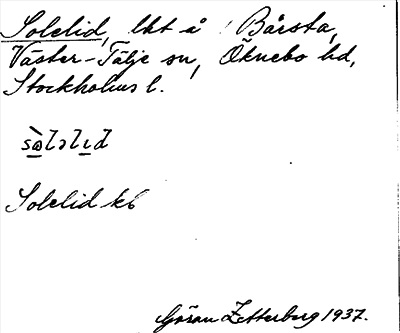 Solelid, lht å Bårsta,
Väster-Tälje sn, Öknebo hd,
Stockholms l.
Solelid kb
Göran Zetterberg 1937.